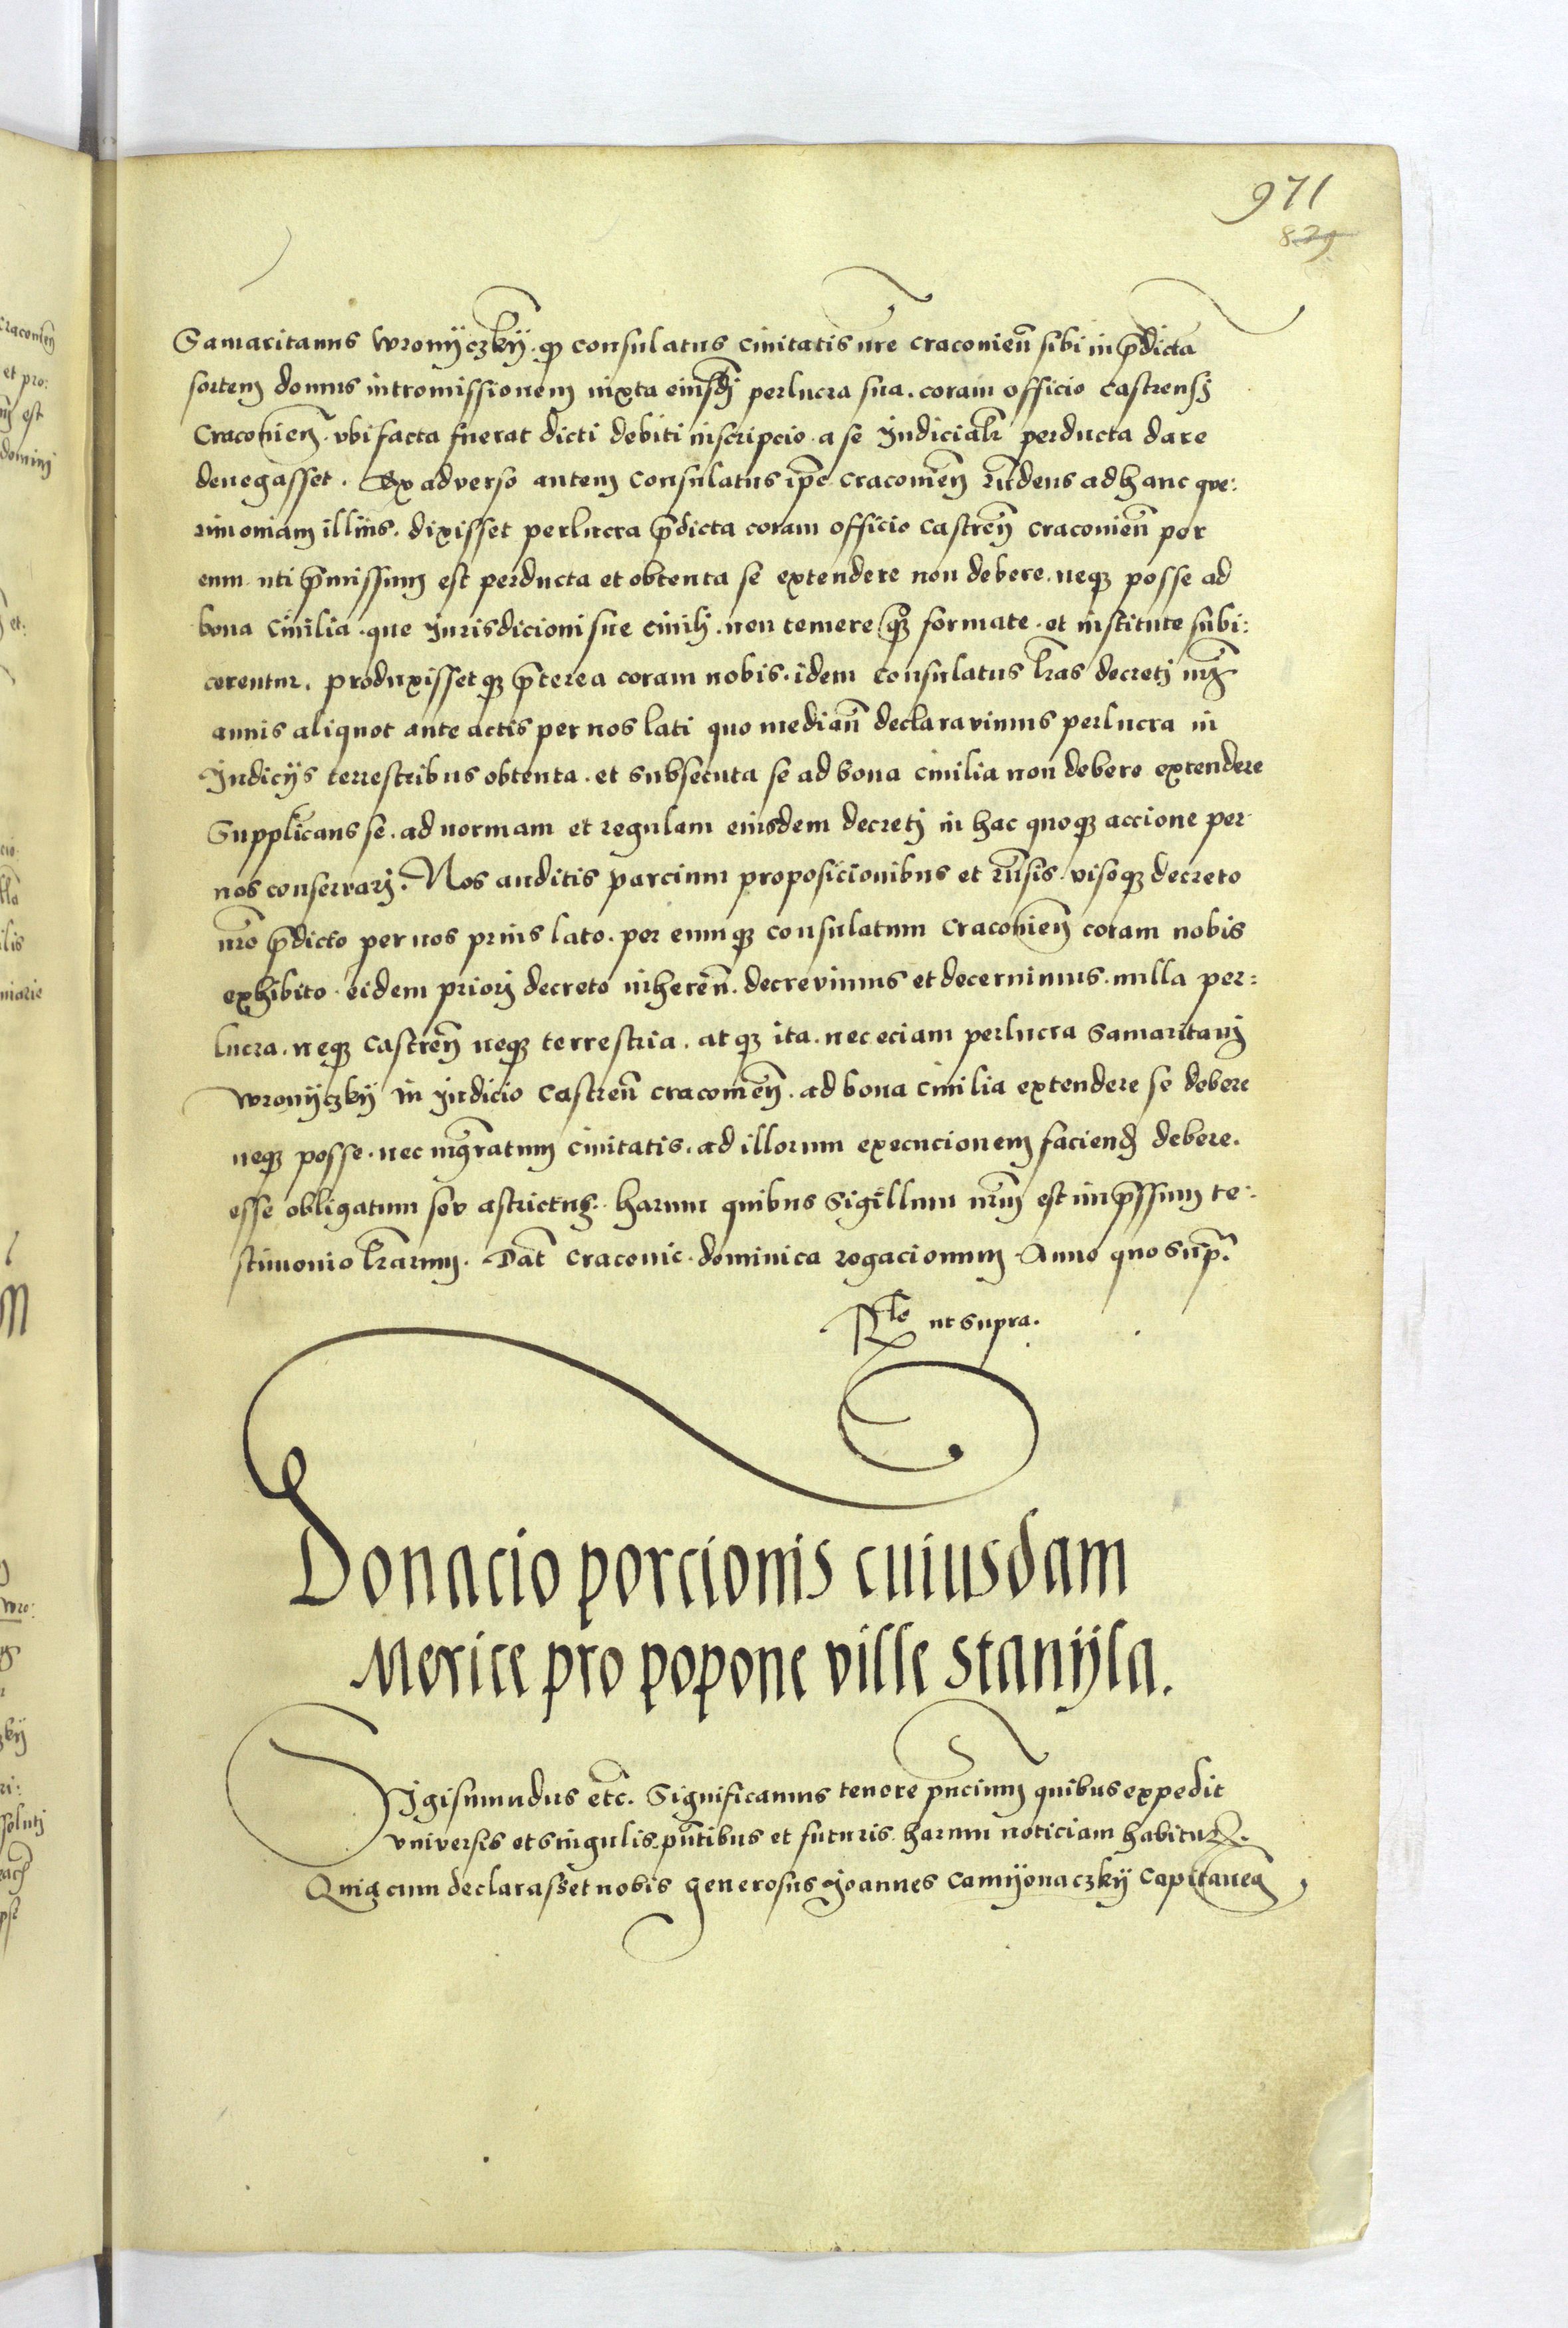 971
829
Samaritanus Wronyczky. qp consulatus civitatis nre Craconien sibi in pdicta
sortem domus intromissionem iuxta eiusdj perlucra sua. coram officio castrensj
Craconien. ubi facta fuerat dicti debiti inscripcio. a se Judicialr perducta dare
denegasset. Ex adverso autem Consulatus ipe Craconien rndens ad hanc que:
rimoniam illius. dixisset perlucra pdicta coram officio Castren Craconien per
eum. uti pmissum est perducta et obtenta se extendere non debere. neqz posse ad
bona Civilia. que Jurisdicioni sue civilj. non temere formate. et institute subi:
cerentur. produxissetqz pterea coram nobis. idem Consulatus lras decretj nrj
annis aliquot ante actis per nos lati quo median declaravimus perlucra in
Judicijs terrestribus obtenta. et subsecuta se ad bona civilia non debere extendere
Supplicans se. ad normam et regulam eiusdem decretj in hac quoqz accione per
nos conservarj. Nos auditis parcium proposicionibus et rnsis. visoqz decreto
nro pdicto per nos prius lato. per eumqz consulatum Craconien coram nobis
exhibito. eidem priorj decreto inheren. decrevimus et decernimus. nulla per=
lucra. neqz Castren neqz terrestria. atqz ita. nec eciam perlucra Samaritanj
Wronyczky in Judicio Castren Craconien. ad bona civilia extendere se debere
neqz posse. nec mgratum civitatis. ad illorum execucionem faciend debere.
esse obligatum sev astrictum. harum quibus Sigillum nrm est impssum te:
stimonio lrarum. Dat Craconie. dominica rogacionum. Anno quo sup.
Rlo ut supra.
Donacio porcionis cuiusdam
Merice pro popone ville Stanyla.
Sigismundus etc. Significamus tenore pncium quibus expedit
universis et singulis pntibus et futuris harum noticiam habitur.
Quia cum declarasset nobis generosus Joannes Camyonaczky Capitaneq